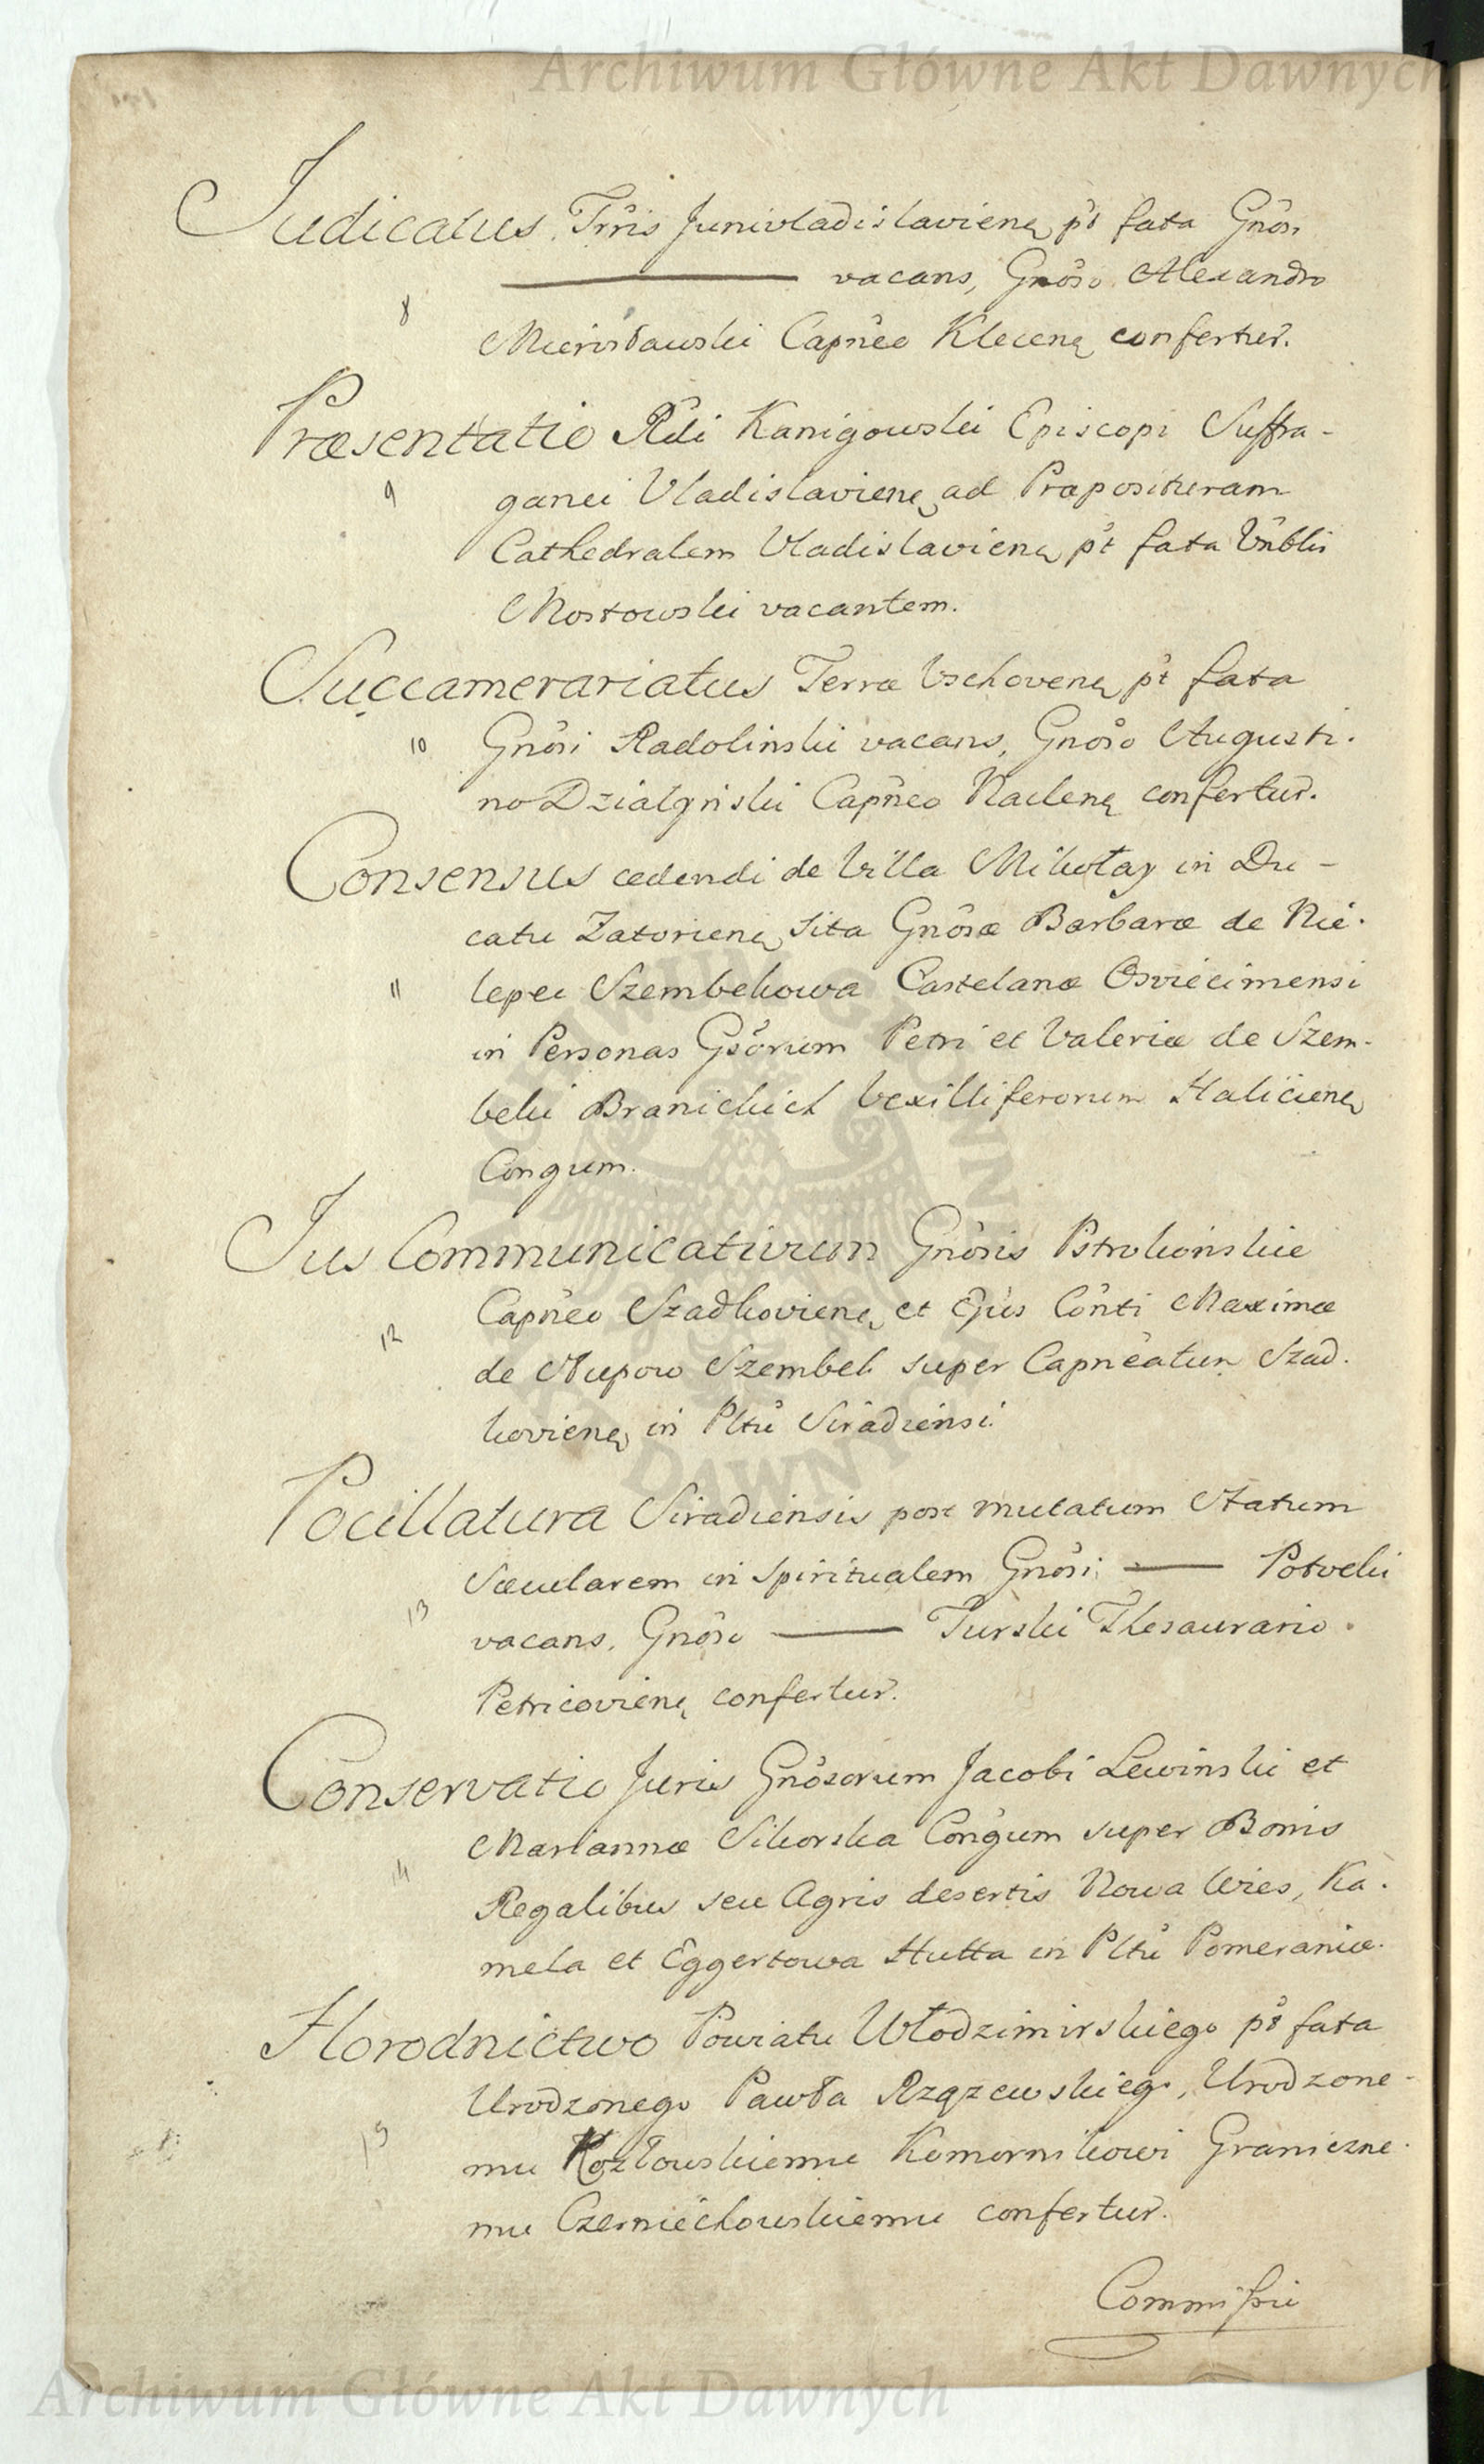 Archiwum Główne Akt Dawnych
Judicatus Trris Junivladislavien. pt fata Gnōsi
vacans, Gnōso Alexandro
8
Mierosławski Capneo Klecen. confertur.
Præsentatio Rdi Kanigowski Episcopi Suffra-
9
ganei Vladislavien. ad Præposituram
Cathedralem Vladislavien. pt fata Vnblis
Mostowski vacantem.
Succamerariatus Terræ Vschoven. pt fata
10 Gnōsi Radolinski vacans, Gnōso Augusti-
no Działyński Capneo Naclen. confertur.
Consensus cedendi de Villa Mikołay in Du-
catu Zatorien. sita Gnōsæ Barbaræ de Nie-
11 lepci Szembekowa Castelanæ Osviecimensi
in Personas Gsōrum Petri et Valeriæ de Szem-
beki Branickich Vexilliferorum Halicien.
Congum.
Jus Communicativum Gnōsis Pstrokonskie
Capneo Szadkovien. et Ejus Conti Maximæ
12
de Słupow Szembek super Capneatum Szad-
kovien. in Pltu Siradiensi
Pocillatura Siradiensis post mutatum Statum
Sæcularem in spiritualem Gnōsi Potocki
13
vacans, Gnōso Turski Thesaurario
Petricovien. confertur.
Conservatio Juris Gnōsorum Jacobi Lewinski et
Mariannæ Sikorska Congum super Bonis
14
Regalibus seu Agris desertis Nowa Wies, Ka-
mela et Eggertowa Hutta in Pltu Pomeraniæ.
Horodnictwo Powiatu Włodzimirskiego pt fata
Urodzonego Pawła Rzązewskiego, Urodzone-
15
mu Kozłowskiemu Komornikowi Graniczne-
mu Czerniechowskiemu confertur.
Commissii
Archiwum Główne Akt Dawnych